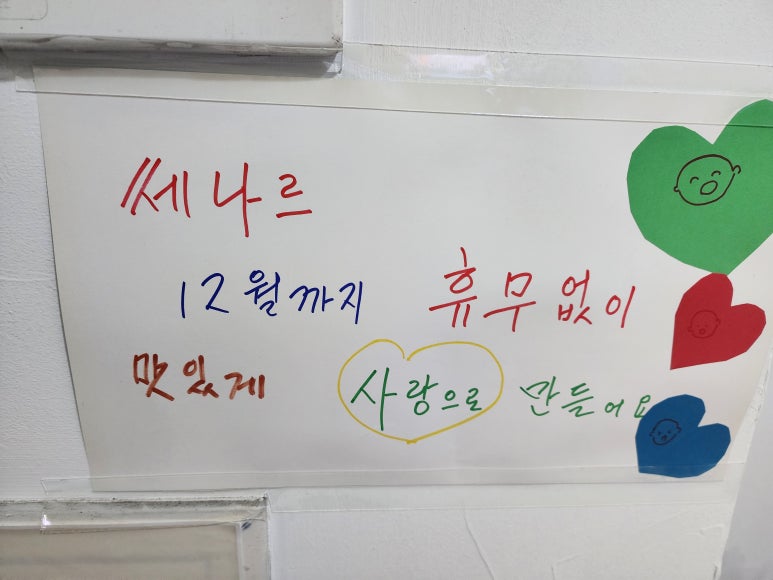 쎄나르
12월까지 휴무없이
맛있게 사랑으로 만들어요